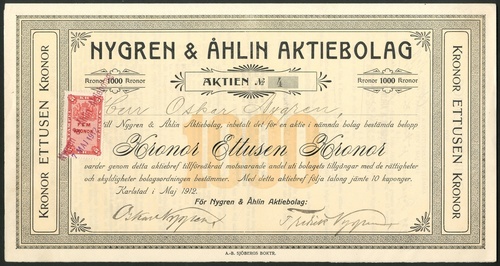 NYGREN & ÅHLIN AKTIEBOLAG
Kronor 1000 Kronor
AKTIEN № 4
Kronor 1000 Kronor
Herr Oskar Nygren
till Nygren & Åhlin Aktiebolag, inbetalt det för en aktie i nämnda bolag bestämda belopp
Kronor Ettusen Kronor
varder genom detta aktiebref tillförsäkrad motsvarande andel uti bolagets tillgångar med de rättigheter
och skyldigheter bolagsordningen bestämmer. Med detta aktiebref följa talong jämte 10 kuponger.
Karlstad i Maj 1912.
För Nygren & Åhlin Aktiebolag:
Oskar Nygren
Fridolf Nygren
KRONOR ETTUSEN KRONOR
KRONOR ETTUSEN KRONOR
FEM
KRONOR
A.-B. SJÖBERGS BOKTR.